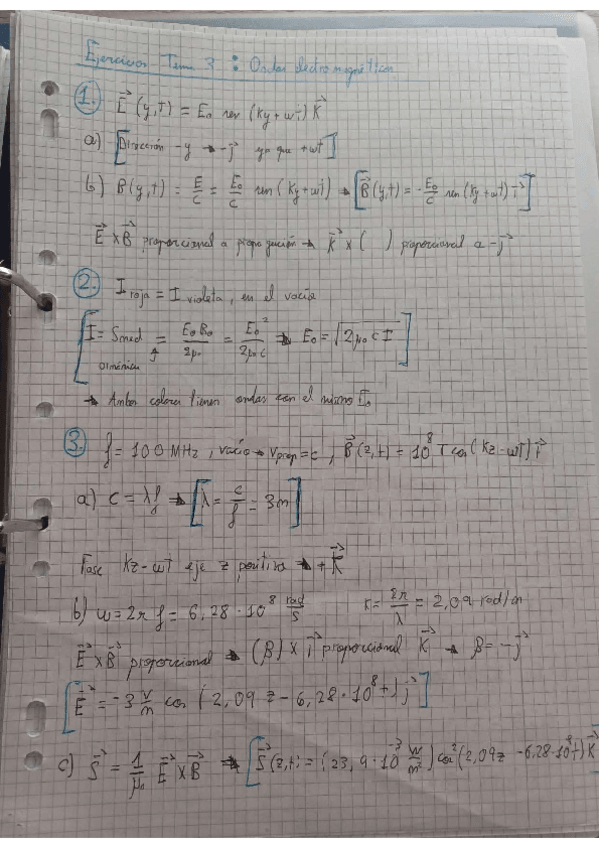 Ejercicios Tema 3: Ondas electromagnéticas
1. E⃗(y,t) = E₀ sen (ky + ωt) k⃗
a) [Dirección -y → -j⃗ ya que +ωt]
b) B(y,t) = E/c = E₀/c sen (ky+ωt) → [B⃗(y,t) = -E₀/c sen (ky+ωt) i⃗]
E⃗ x B⃗ proporcional a propagación → k⃗ x ( ) proporcional a -j⃗
2. I roja = I violeta, en el vacío
[I = Smed = E₀B₀/2μ₀ = E₀²/2μ₀c → E₀ = √2μ₀cI]
→ Ambos colores tienen ondas con el mismo E₀
3. f = 100 MHz, vacío → vprop = c, B⃗(z,t) = 10⁸ T cos (kz-ωt) i⃗
a) c = λf → [λ = c/f = 3m]
Fase kz-ωt eje z positivo → +k⃗
b) ω = 2πf = 6,28·10⁸ rad/s k = 2π/λ = 2,09 rad/m
E⃗ x B⃗ proporcional → (β) x i⃗ proporcional k⃗ → β = -j⃗
[E⃗ = -3 V/m cos (2,09 z - 6,28·10⁸ t) j⃗]
c) S⃗ = 1/μ₀ E⃗ x B⃗ → [S⃗(z,t) = (23,9·10⁻³ W/m²) cos² (2,09z - 6,28·10⁸t) k⃗